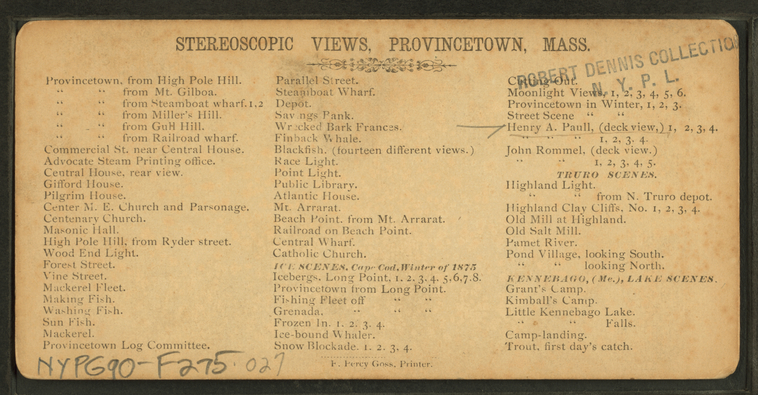 STEREOSCOPIC VIEWS, PROVINCETOWN, MASS.
Provincetown, from High Pole Hill.
“ “ from Mt. Gilboa.
“ “ from Steamboat wharf. 1. 2
“ “ from Miller's Hill.
“ “ from Gull Hill.
“ “ from Railroad wharf.
Commercial St. near Central House.
Advocate Steam Printing office.
Central House, rear view.
Gifford House.
Pilgrim House.
Center M. E. Church and Parsonage.
Centenary Church.
Masonic Hall.
High Pole Hill, from Ryder street.
Wood End Light.
Forest Street.
Vine Street.
Mackerel Fleet.
Making Fish.
Washing Fish.
Sun Fish.
Mackerel.
Provincetown Log Committee.
Parallel Street.
Steamboat Wharf.
Depot.
Savings Bank.
Wrecked Bark Frances.
Finback Whale.
Blackfish. (fourteen different views.)
Race Light.
Point Light.
Public Library.
Atlantic House.
Mt. Arrarat.
Beach Point, from Mt. Arrarat.
Railroad on Beach Point.
Central Wharf.
Catholic Church.
ICE SCENES, Cape Cod, Winter of 1875
Icebergs, Long Point, 1. 2. 3. 4. 5. 6. 7. 8.
Provincetown from Long Point.
Fishing Fleet off “ “
Grenada, “ “ “
Frozen In. 1. 2. 3. 4.
Ice-bound Whaler.
Snow Blockade. 1. 2. 3. 4.
Out.
Moonlight Views, 1, 2, 3, 4, 5, 6.
Provincetown in Winter, 1, 2, 3.
Street Scene “ “
Henry A. Paull, (deck view,) 1, 2, 3, 4.
“ “ “ 1, 2, 3, 4.
John Rommel, (deck view.)
“ “ 1, 2, 3, 4, 5.
TRURO SCENES.
Highland Light.
“ “ from N. Truro depot.
Highland Clay Cliffs, No. 1, 2, 3, 4.
Old Mill at Highland.
Old Salt Mill.
Pamet River.
Pond Village, looking South.
“ “ looking North.
KENNEBAGO, (Me.), LAKE SCENES.
Grant's Camp.
Kimball's Camp.
Little Kennebago Lake.
“ “ Falls.
Camp-landing.
Trout, first day's catch.
F. Percy Goss, Printer.
ROBERT DENNIS COLLECTION
N. Y. P. L.
NYPG90-F275 027